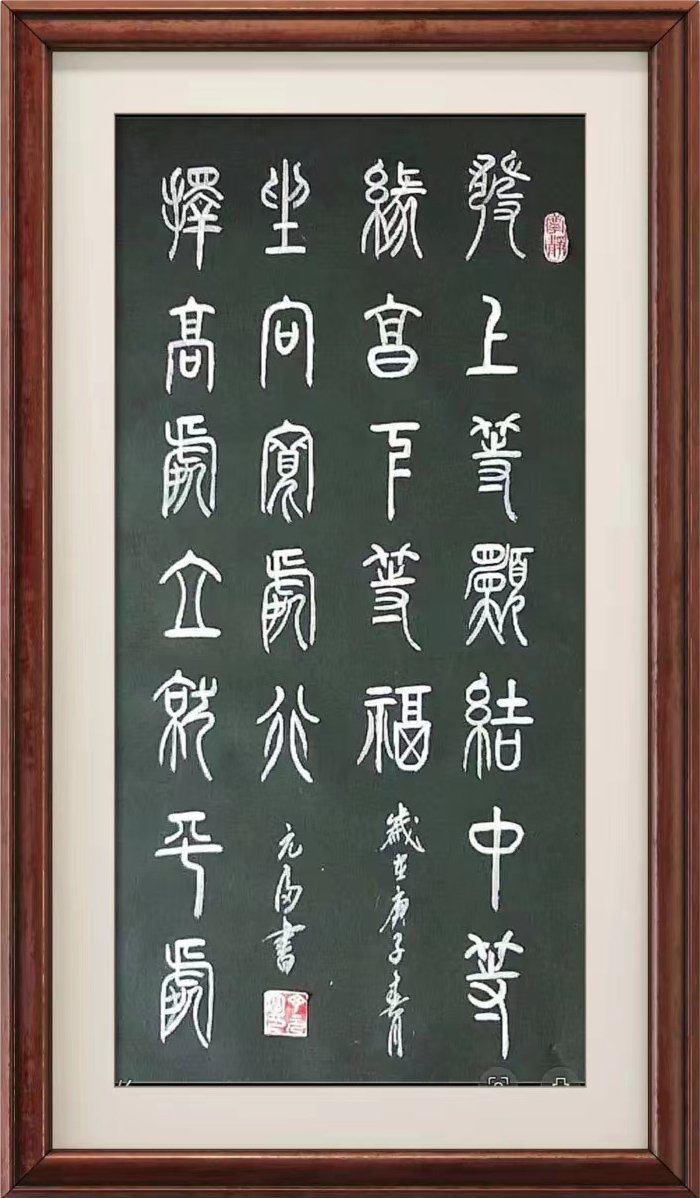 發上等願結中等
緣享下等福
歲在庚子春月
擇高處立就平處
坐向寬處行
元 書